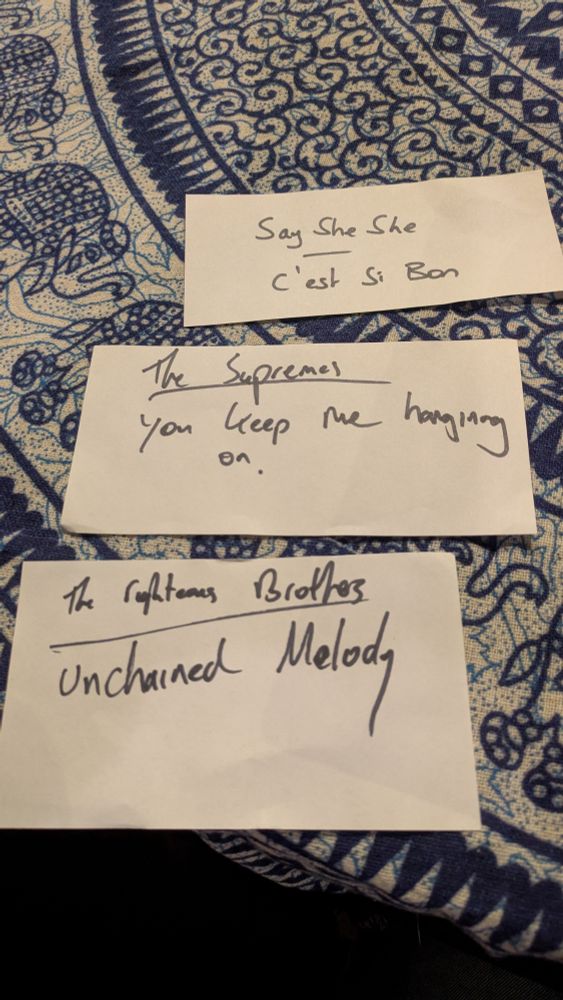 Say She She
C'est Si Bon
The Supremes
You keep me hanging
on.
The righteous Brothers
Unchained Melody